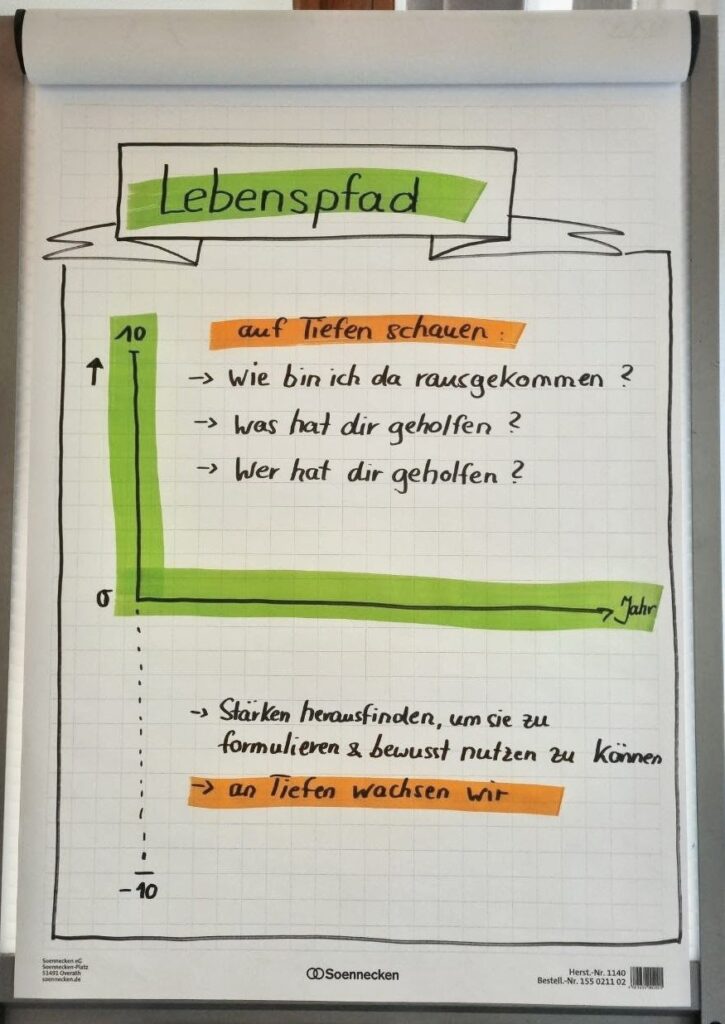 Lebenspfad
10
auf Tiefen schauen:
→ Wie bin ich da rausgekommen?
→ Was hat dir geholfen?
→ Wer hat dir geholfen?
0
Jahr
→ Stärken herausfinden, um sie zu
formulieren & bewusst nutzen zu können
→ an Tiefen wachsen wir
-10
Soennecken eG
Soennecken-Platz
51491 Overath
soennecken.de
Soennecken
Herst.-Nr. 1140
Bestell.-Nr. 155 0211 02